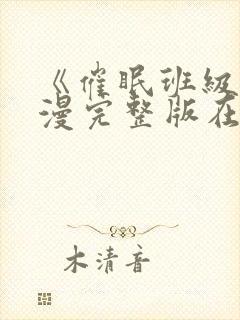 《催眠班级
漫完整版在
木清音